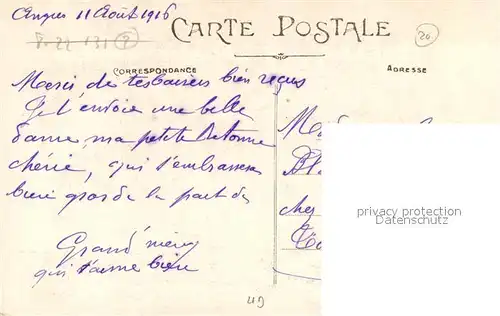 Angers 11 Août 1916
CARTE POSTALE
20
CORRESPONDANCE
ADRESSE
Merci, de tes baisers bien reçus
Je t'envoie une belle
dame ma petite
chérie, qui t'embrassera
bien gros de la part de
Grand'mère
qui t'aime bien
Mad
cher
privacy protection
Datenschutz